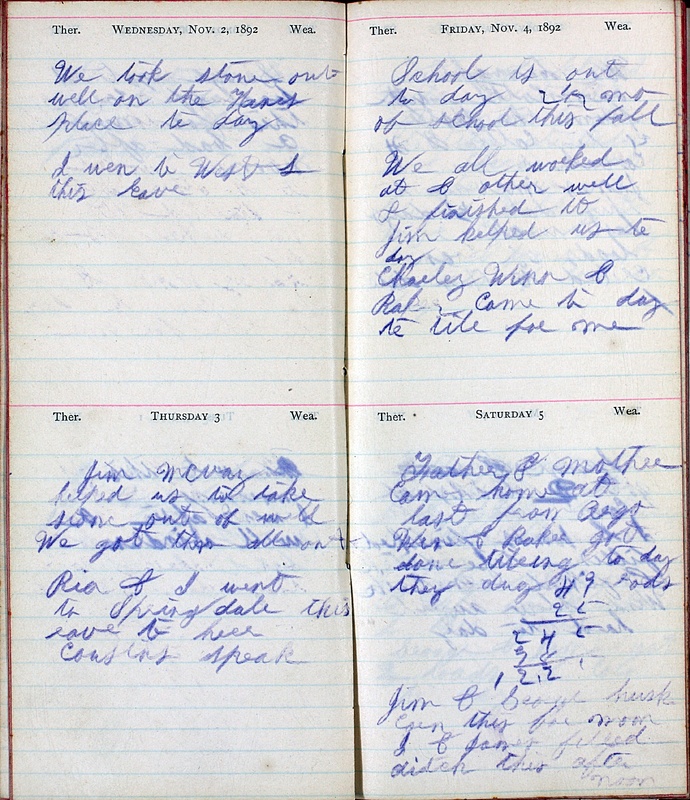 Ther. WEDNESDAY, NOV. 2, 1892 Wea.
We took stone out
well on the
place to day
I wen to West
this
Ther. THURSDAY 3 Wea.
Jim McVay
helped us to take
stone out of well
We got them all out
Ria & I went
to Springdale this
eave to hear
Cousins speak
Ther. FRIDAY, NOV. 4, 1892 Wea.
School is out
to day 2 1/2 mo
of school this fall
We all worked
at & other well
& finished it
Jim helped us to
day
Charley Winn &
Came to day
to tile for me
Ther. SATURDAY 5 Wea.
Father & Mother
Cam home at
last from
Winn & Baker got
done tileing to day
they dug 49 rods
2 5
2 4 5
9 8
1 2.2 5
Jim & husk
Corn this fore noon
I & James filled
ditch this after
noon